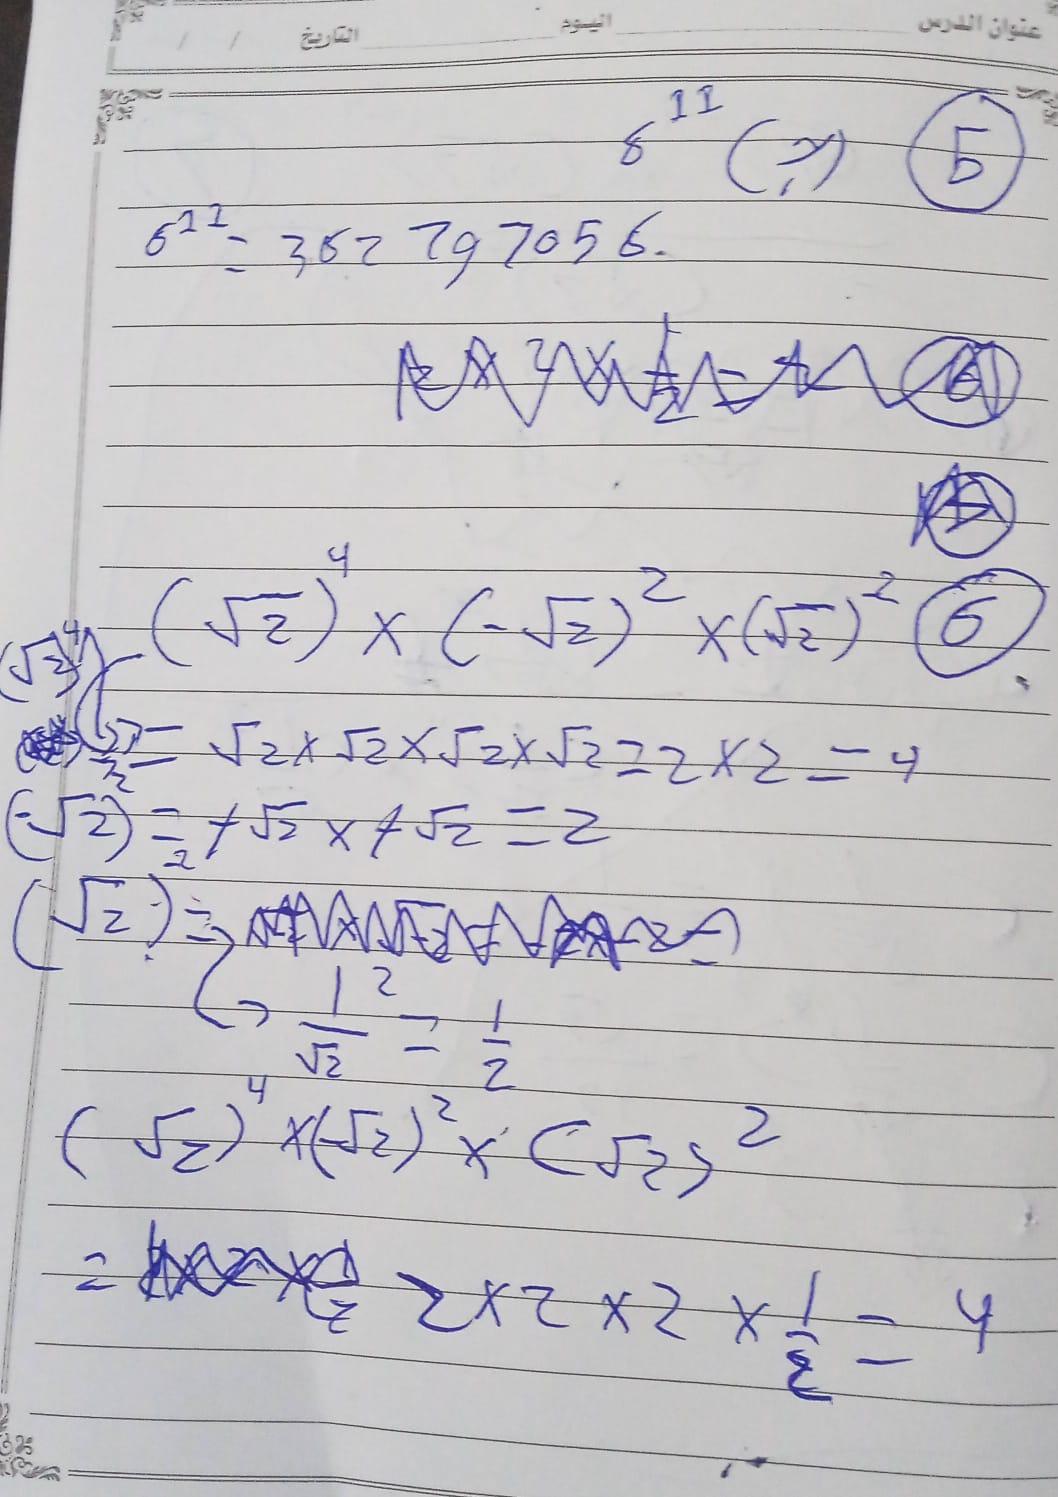 عنوان الدرس اليوم التاريخ / /
6^11 (ج) 5
6^11 = 362 797056.
(√2)^4 × (-√2)^2 × (√2)^-2 6
(√2)^4 = √2 × √2 × √2 × √2 = 2 × 2 = 4
(-√2)^2 = +√2 × +√2 = 2
(√2)^-2 =
1/√2^2 = 1/2
(√2)^4 × (-√2)^2 × (√2)^2
= 2 × 2 × 2 × 1/2 = 4